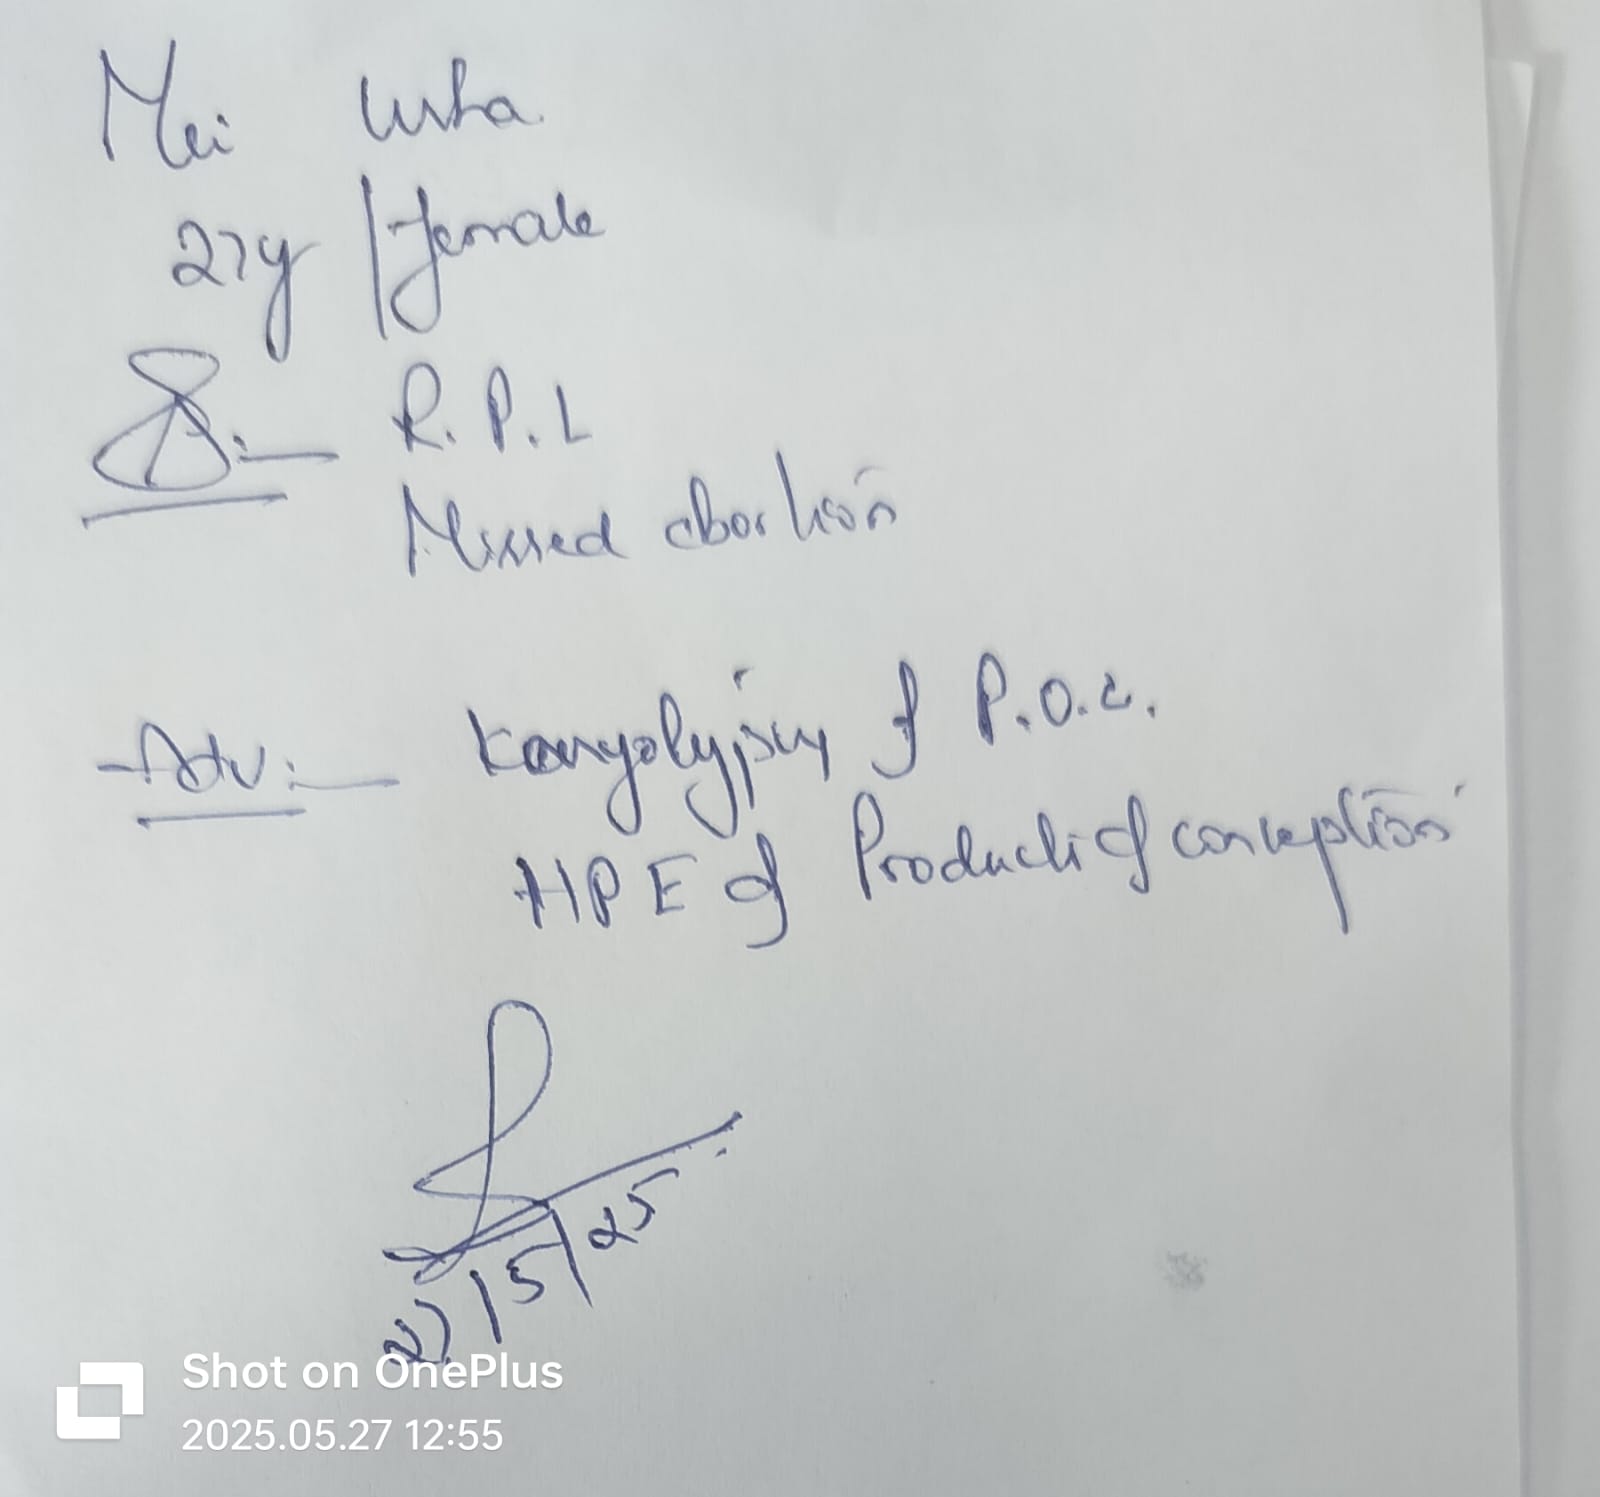 Usha
27y / female
R.P.L
Missed abortion
Adv:— Karyotyping of P.O.C.
HPE of Product of conception
27/5/25
Shot on OnePlus
2025.05.27 12:55